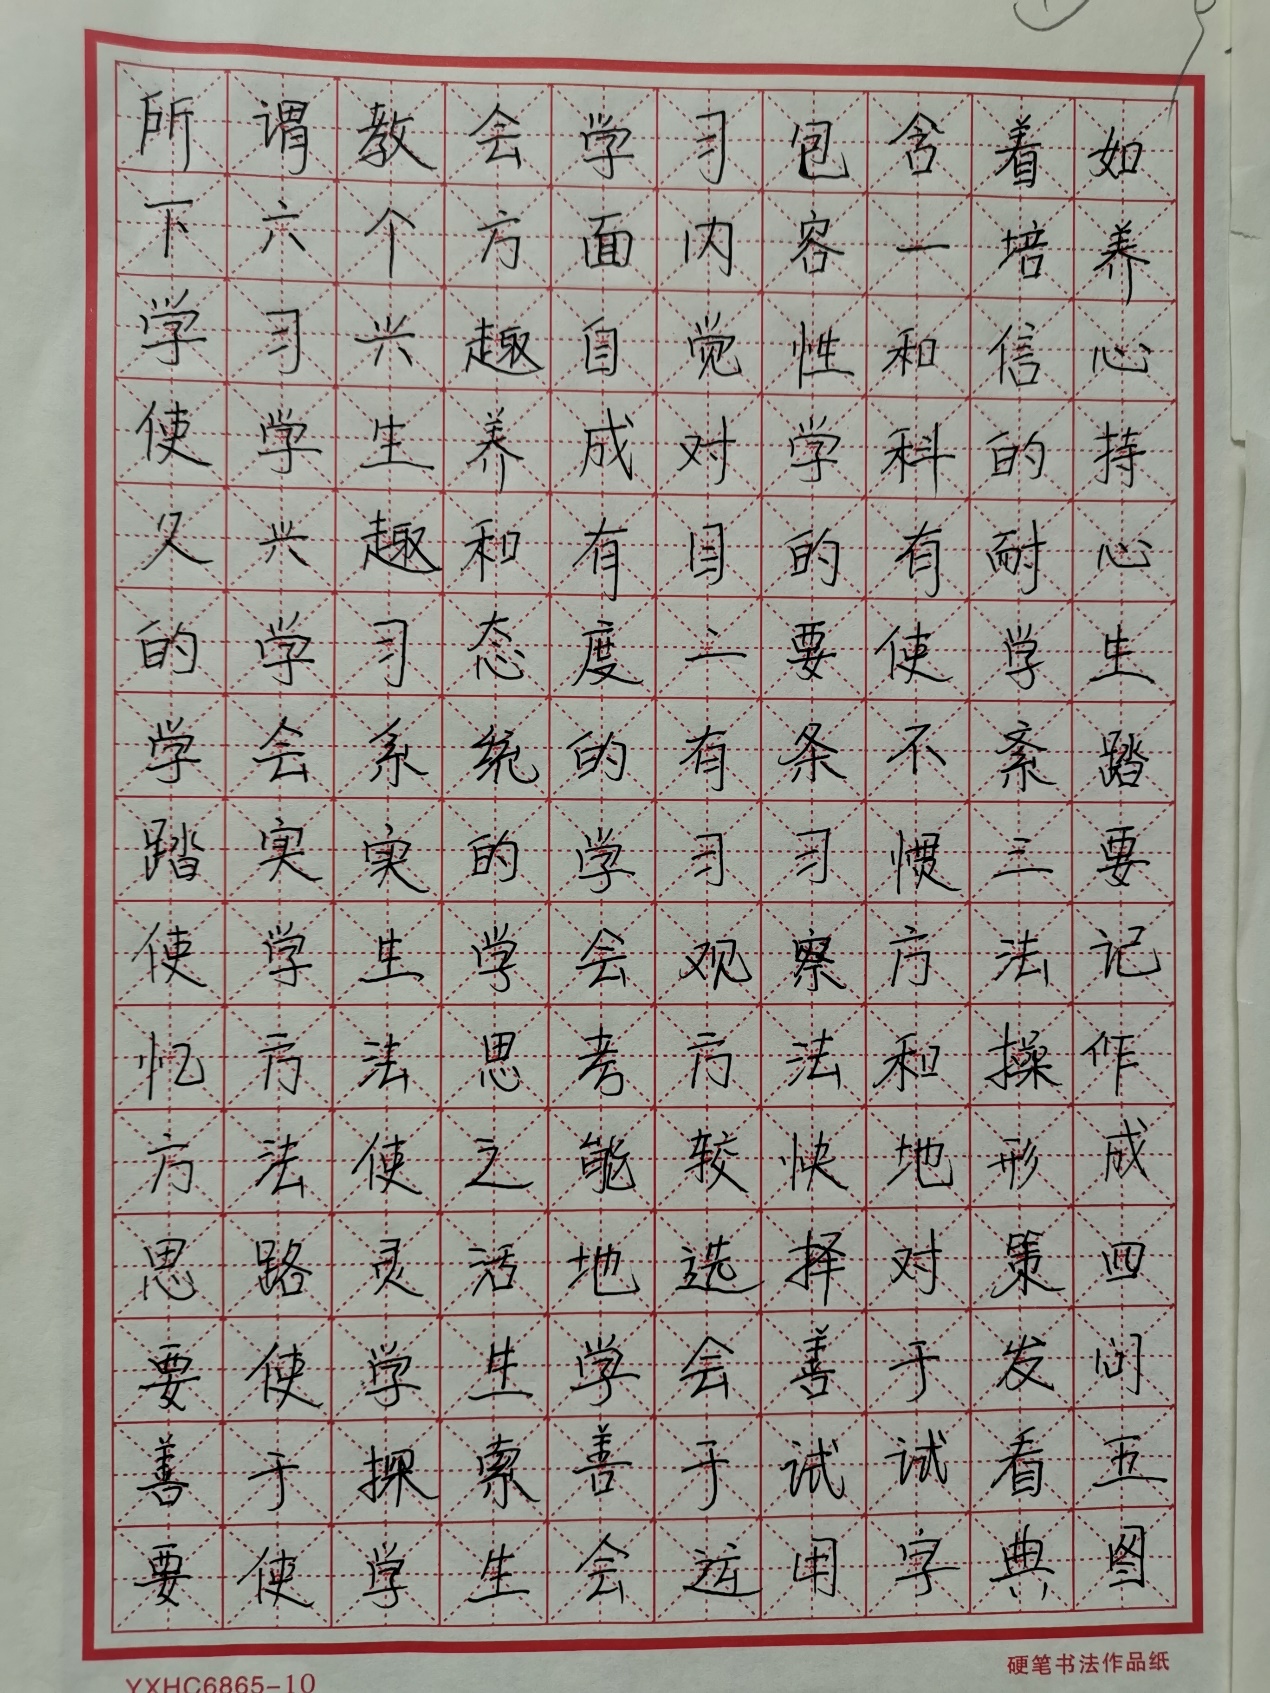 所谓教会学习包含着如
下六个方面内容一培养
学习兴趣自觉性和信心
使学生养成对学科的持
久兴趣和有目的有耐心
的学习态度二要使学生
学会系统的有条不紊踏
踏实实的学习习惯三要
使学生学会观察方法记
忆方法思考方法和操作
方法使之能较快地形成
思路灵活地选择对策四
要使学生学会善于发问
善于探索善于试试看五
要使学生会运用字典图
YXHC6865-10
硬笔书法作品纸